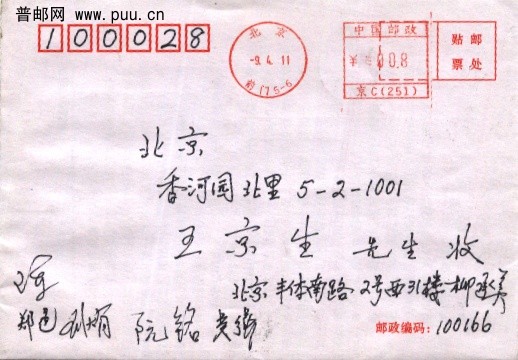 普邮网
www.puu.cn
100028
北京
-9.4.11
中国邮政
¥ 00.8
京C(251)
贴邮
票处
北京
香河园北里 5-2-1001
王京生 先生 收
北京丰体南路2号西31楼
邮政编码: 100166
阮铭